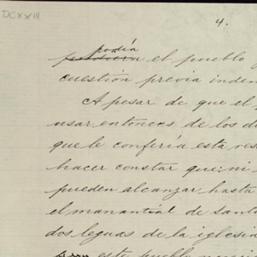 DCXXIII
4.
podía
el pueblo
cuestión previa inden
Apesar de que el
usar entonces de los d
que le confería está res
hacer constar que: ni
pueden alcanzar hasta
el manantial de santa
dos leguas de la iglesia
este pueblo